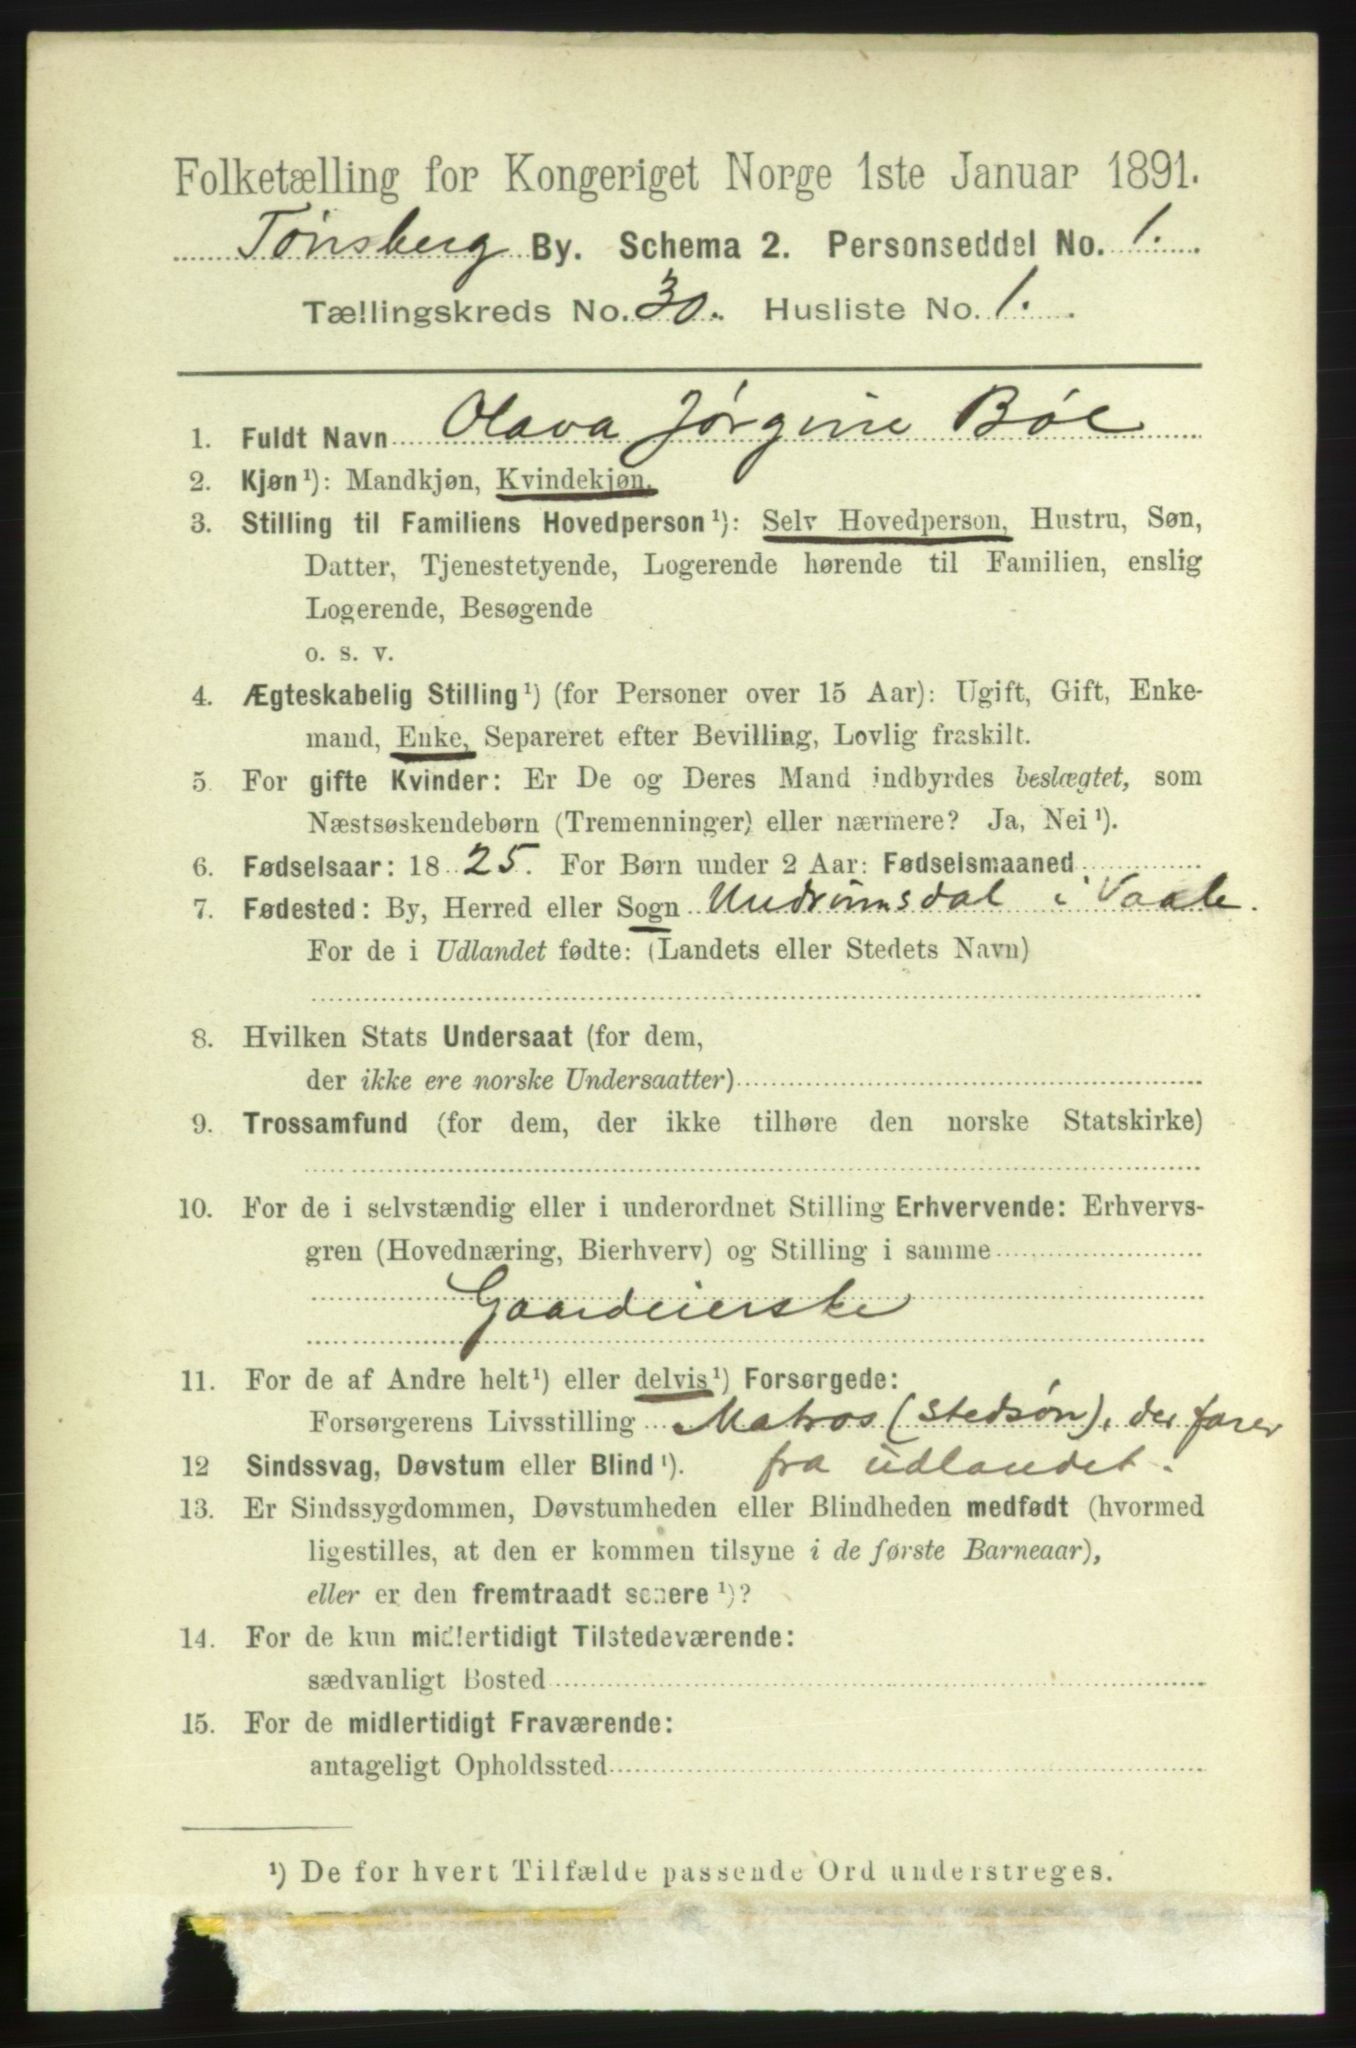 Folketælling for Kongeriget Norge 1ste Januar 1891.
Tønsberg By. Schema 2. Personseddel No. 1.
Tællingskreds No. 30. Husliste No. 1.
1. Fuldt Navn Olava Jørgine Böe
2. Kjøn¹): Mandkjøn, Kvindekjøn.
3. Stilling til Familiens Hovedperson¹): Selv Hovedperson, Hustru, Søn,
Datter, Tjenestetyende, Logerende hørende til Familien, enslig
Logerende, Besøgende
o. s. v.
4. Ægteskabelig Stilling¹) (for Personer over 15 Aar): Ugift, Gift, Enke-
mand, Enke, Separeret efter Bevilling, Lovlig fraskilt.
5. For gifte Kvinder: Er De og Deres Mand indbyrdes beslægtet, som
Næstsøskendebørn (Tremenninger) eller nærmere? Ja, Nei¹).
6. Fødselsaar: 1825. For Børn under 2 Aar: Fødselsmaaned
7. Fødested: By, Herred eller Sogn Undrumsdal i Vaale.
For de i Udlandet fødte: (Landets eller Stedets Navn)
8. Hvilken Stats Undersaat (for dem,
der ikke ere norske Undersaatter)
9. Trossamfund (for dem, der ikke tilhøre den norske Statskirke)
10. For de i selvstændig eller i underordnet Stilling Erhvervende: Erhvervs-
gren (Hovednæring, Bierhverv) og Stilling i samme
Gaardeierske
11. For de af Andre helt¹) eller delvis¹) Forsørgede:
Forsørgerens Livsstilling Matros (stedsøn), der farer
12 Sindssvag, Døvstum eller Blind¹). fra udlandet.
13. Er Sindssygdommen, Døvstumheden eller Blindheden medfødt (hvormed
ligestilles, at den er kommen tilsyne i de første Barneaar),
eller er den fremtraadt senere¹)?
14. For de kun midlertidigt Tilstedeværende:
sædvanligt Bosted
15. For de midlertidigt Fraværende:
antageligt Opholdssted
¹) De for hvert Tilfælde passende Ord understreges.